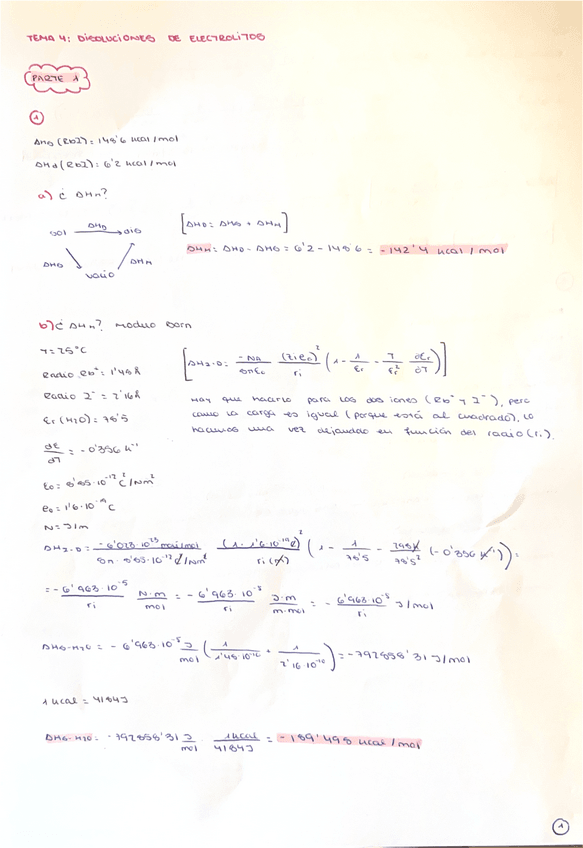 TEMA 4: DISOLUCIONES DE ELECTROLITOS
PARTE 1
1
ΔHG (RbI) = 148'6 kcal/mol
ΔHd (RbI) = 6'2 kcal/mol
a) ¿ ΔHh?
sol ΔHD dis
ΔHG vacío ΔHh
[ΔHD = ΔHG + ΔHh]
ΔHh = ΔHD - ΔHG = 6'2 - 148'6 = -142'4 kcal/mol
b) ¿ ΔHh? Modelo Born
T = 25°C
Radio Rb⁺ = 1'48 Å
Radio I⁻ = 2'16 Å
εr (H2O) = 78'5
dε/dT = -0'356 K⁻¹
ε0 = 8'85·10⁻¹² C²/Nm²
e0 = 1'6·10⁻¹⁹ C
N = J/m
[ΔHI-D = -NA/8πε0 (zi e0)²/ri (1 - 1/εr - T/εr² dεr/dT)]
Hay que hacerlo para los dos iones (Rb⁺ y I⁻), pero
como la carga es igual (porque está al cuadrado), lo
hacemos una vez dejándolo en función del radio (ri).
ΔHI-D = -6'023·10²³ mol/mol / 8π·8'85·10⁻¹² C²/Nm² (1·1'6·10⁻¹⁹ C)²/ri (1 - 1/78'5 - 298K/78'5² (-0'356 K⁻¹)) =
= -6'963·10⁻⁵/ri N·m/mol = -6'963·10⁻⁵/ri J·m/m·mol = -6'963·10⁻⁵/ri J/mol
ΔHG-H2O = -6'963·10⁻⁵ J/mol (1/1'48·10⁻¹⁰ + 1/2'16·10⁻¹⁰) = -792858'31 J/mol
1 kcal = 4184J
ΔHG-H2O = -792858'31 J/mol · 1 kcal/4184J = -189'498 kcal/mol
1